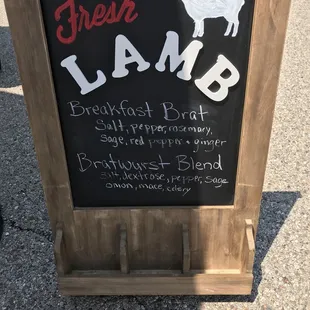 Fresh
LAMB
Breakfast Brat
Salt, pepper, rosemary,
sage, red pepper + ginger
Bratwurst Blend
Salt, dextrose, pepper, sage
onion, mace, celery